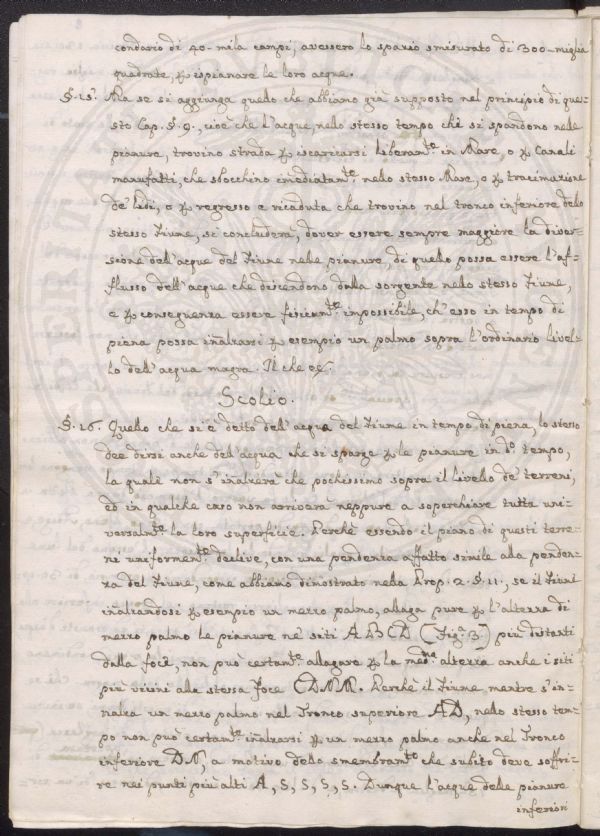 condario di 40- mila campi, avessero lo spazio smisurato di 300- miglia
quadrate, p ispianare le loro acque.
§. 15. Ma se si aggiunga quello che abbiamo già supposto nel principio di que=
sto Cap. §. 9. cioè che l'acque nello stesso tempo che si spandono nelle
pianure, trovino strada p iscaricarsi liberam.te in Mare, o p Canali
manufatti, che sbocchino imediatam.te nello stesso Mare, o p tracimazione
de' Lidi, o p regresso e ricaduta che trovino nel tronco inferiore dello
stesso Fiume, si concluderà, dover essere sempre maggiore la diver=
sione dell'acque del Fiume nelle pianure, di quello possa essere l'af=
flusso dell'acque che discendono dalla sorgente nello stesso Fiume,
e p conseguenza essere fisicam.te impossibile, ch'esso in tempo di
piena possa inalzarsi p esempio un palmo sopra l'ordinario livel=
lo dell'acqua magra. Il che &c.
Scolio.
§. 16. Quello che si è detto dell'acqua del Fiume in tempo di piena, lo stesso
dee dirsi anche dell'acqua che si sparge p le pianure in d.o tempo,
la quale non s'inalzerà che pochissimo sopra il livello de' terreni,
ed in qualche caso non arrivarà neppure a soperchiare tutta uni=
versalm.te la loro superficie. Perchè essendo il piano di questi terre=
ni uniformem.te declive, con una pendenza affatto simile alla penden=
za del Fiume, come abbiamo dimostrato nella Prop. 2. §. 11., se il Fiume
inalzandosi p esempio un mezzo palmo, allaga pure p l'altezza di
mezzo palmo le pianure ne' siti ABCD (Fig.a 3.) più distanti
dalla foce, non può certam.te allagare p la med.ma altezza anche i siti
più vicini alla stessa Foce CDNM. Perchè il Fiume, mentre s'in=
alza un mezzo palmo nel Tronco superiore AD, nello stesso tem=
po non può certam.te inalzarsi p un mezzo palmo anche nel Tronco
inferiore DN, a motivo dello smembram.to che subito deve soffri=
re nei punti più alti A, S, S, S, S. Dunque l'acque delle pianure
inferiori